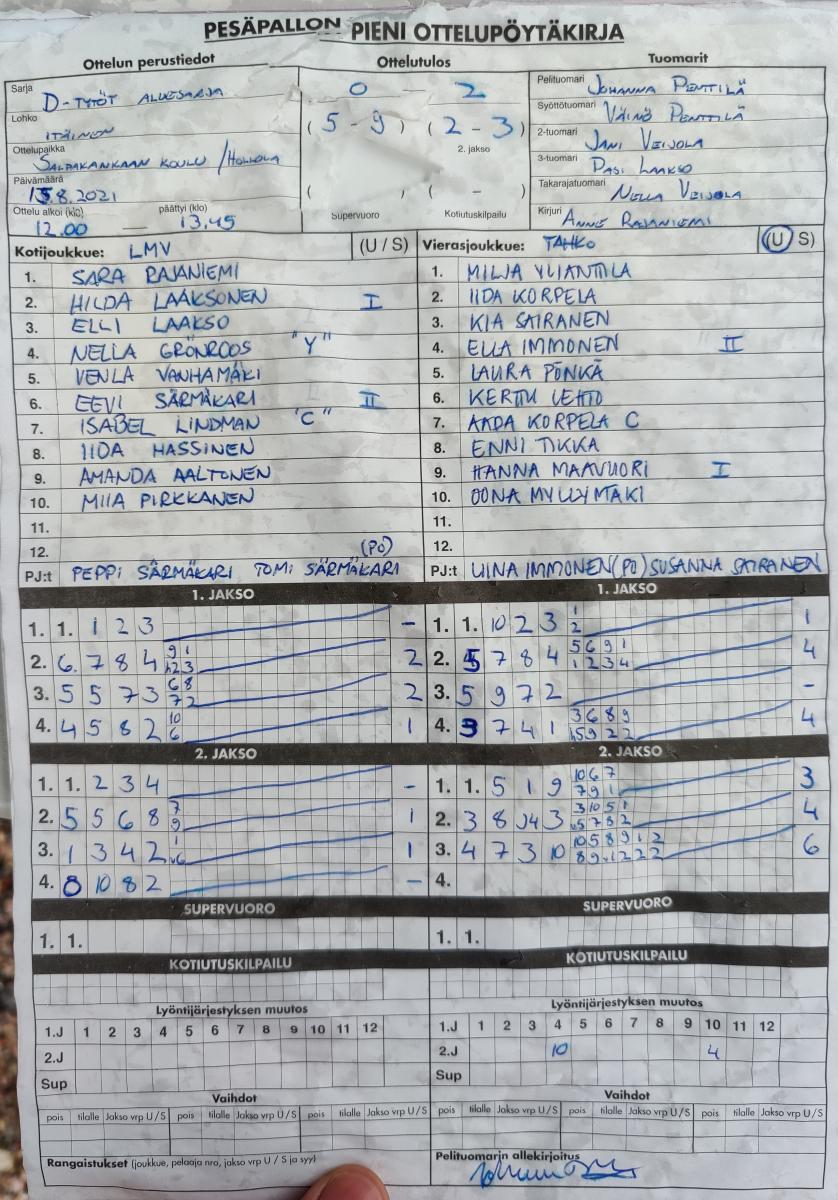 PESÄPALLON PIENI OTTELUPÖYTÄKIRJA
Ottelun perustiedot
Sarja D-TYTÖT ALUESARJA
Lohko ITÄINEN
Ottelupaikka SALPAKANKAAN KOULU / HOLLOLA
Päivämäärä 15.8.2021
Ottelu alkoi (klo) päättyi (klo)
12.00 — 13.45
Ottelutulos
0 - 2
(5 - 9) (2 - 3)
2. jakso
( ( - )
Supervuoro Kotiutuskilpailu
Tuomarit
Pelituomari JOHANNA PENTTILÄ
Syöttötuomari VÄINÖ PENTTILÄ
2-tuomari JANI VEIJOLA
3-tuomari PASI LAAKSO
Takarajatuomari NELLA VEIJOLA
Kirjuri ANNE RAJANIEMI
Kotijoukkue: LMV (U / S)
1. SARA RAJANIEMI
2. HILDA LAAKSONEN I
3. ELLI LAAKSO
4. NELLA GRÖNROOS "Y"
5. VENLA VANHAMÄKI
6. EEVI SÄRMÄKARI II
7. ISABEL LINDMAN "C"
8. IIDA HASSINEN
9. AMANDA AALTONEN
10. MIIA PIRKKANEN
11.
12. (PO)
PJ:t PEPPI SÄRMÄKARI TOMI SÄRMÄKARI
Vierasjoukkue: TAHKO (U / S)
1. MILJA YLIANTTILA
2. IIDA KORPELA
3. KIA SAIRANEN
4. ELLA IMMONEN II
5. LAURA PÖNKÄ
6. KERTTU LEHTO
7. AADA KORPELA C
8. ENNI TIKKA
9. HANNA MAAVUORI I
10. OONA MYLLYMÄKI
11.
12.
PJ:t IMMONEN (PO) SUSANNA SAIRANEN
1. JAKSO
1. 1. 1 2 3 -
2. 6. 7 8 4 9 1 2 3 2
3. 5 5 7 3 6 8 7 2 2
4. 4 5 8 2 10 6 1
2. JAKSO
1. 1. 2 3 4 -
2. 5 5 6 8 7 9 1
3. 1 3 4 2 1 v6 1
4. 8 10 8 2 -
SUPERVUORO
1. 1.
KOTIUTUSKILPAILU
Lyöntijärjestyksen muutos
1.J 1 2 3 4 5 6 7 8 9 10 11 12
2.J
Sup
Vaihdot
pois tilalle Jakso vrp U / S pois tilalle Jakso vrp U / S pois tilalle Jakso vrp U / S
Rangaistukset (joukkue, pelaaja nro, jakso vrp U / S ja syy)
1. JAKSO
1. 1. 10 2 3 1 2 1
2. 5 7 8 4 5 6 9 1 1 2 3 4 4
3. 5 9 7 2 -
4. 3 7 4 1 3 6 8 9 5 9 2 2 4
2. JAKSO
1. 1. 5 1 9 10 6 7 7 9 1 3
2. 3 8 3 3 10 5 1 v5 7 8 2 4
3. 4 7 3 10 10 5 8 9 1 2 8 9 v1 2 2 2 6
4.
SUPERVUORO
1. 1.
KOTIUTUSKILPAILU
Lyöntijärjestyksen muutos
1.J 1 2 3 4 5 6 7 8 9 10 11 12
2.J 10 4
Sup
Vaihdot
pois tilalle Jakso vrp U / S pois tilalle Jakso vrp U / S pois tilalle Jakso vrp U / S
Pelituomarin allekirjoitus